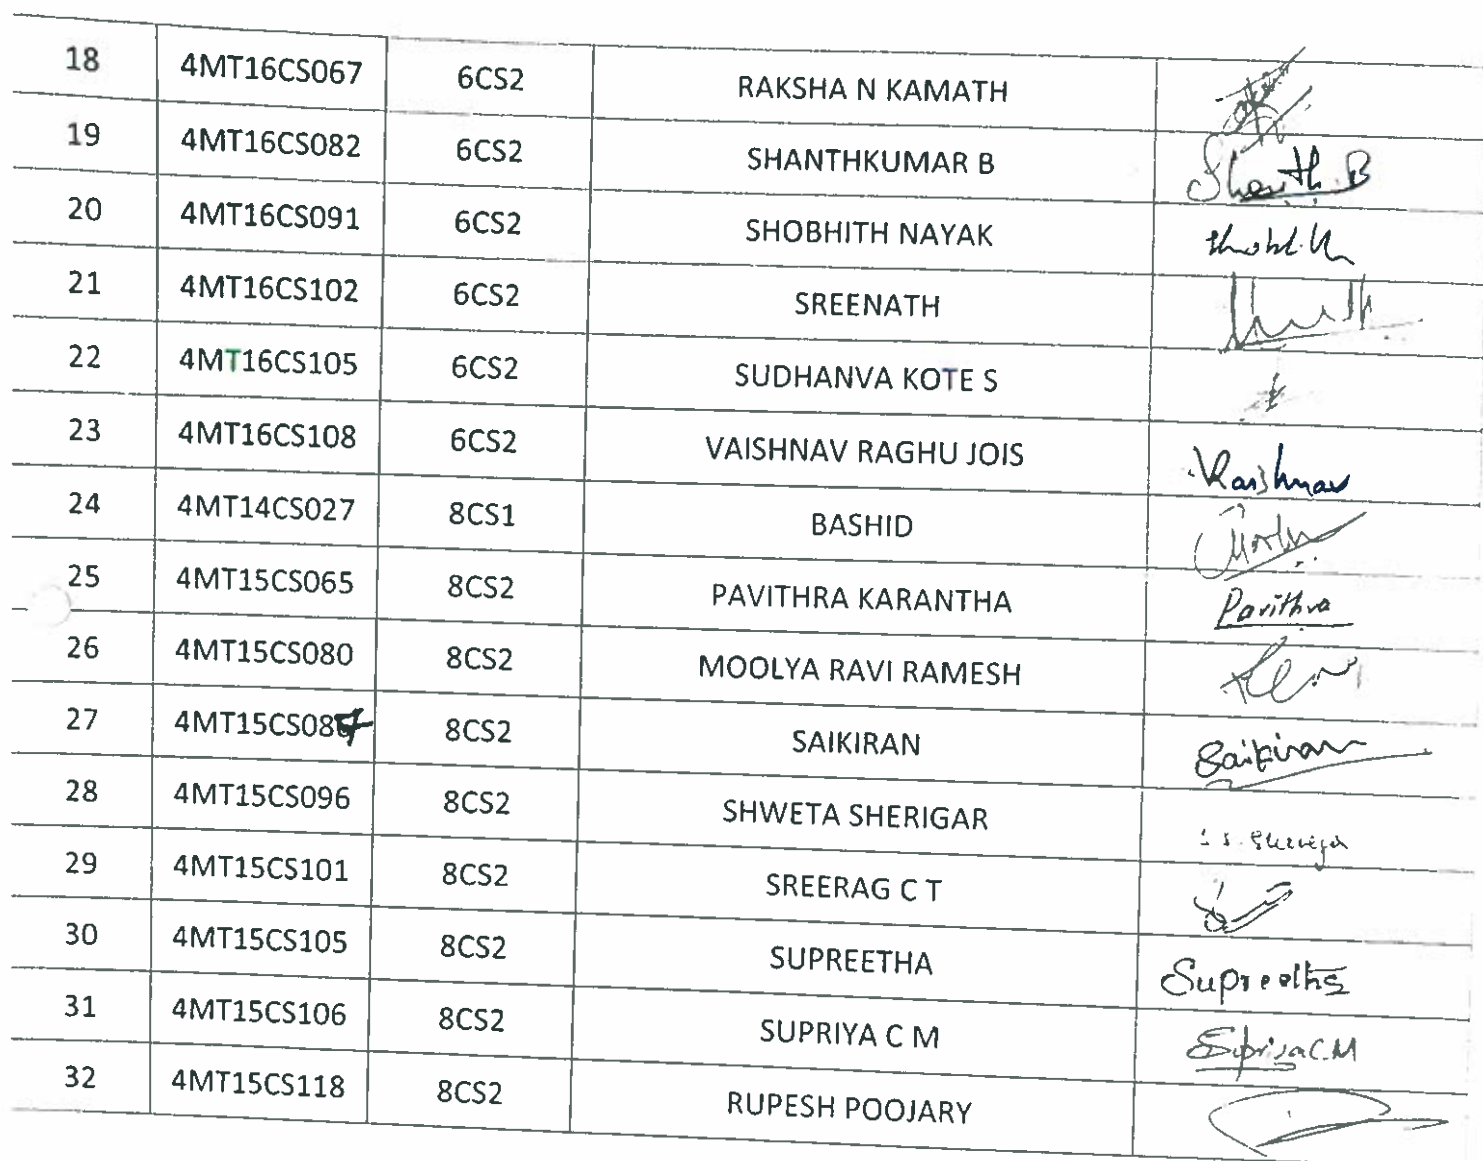 18 4MT16CS067 6CS2 RAKSHA N KAMATH
19 4MT16CS082 6CS2 SHANTHKUMAR B Shanth.B
20 4MT16CS091 6CS2 SHOBHITH NAYAK
21 4MT16CS102 6CS2 SREENATH
22 4MT16CS105 6CS2 SUDHANVA KOTE S
23 4MT16CS108 6CS2 VAISHNAV RAGHU JOIS Vaishnav
24 4MT14CS027 8CS1 BASHID
25 4MT15CS065 8CS2 PAVITHRA KARANTHA Pavithra
26 4MT15CS080 8CS2 MOOLYA RAVI RAMESH
27 4MT15CS087 8CS2 SAIKIRAN Saikiran
28 4MT15CS096 8CS2 SHWETA SHERIGAR
29 4MT15CS101 8CS2 SREERAG C T
30 4MT15CS105 8CS2 SUPREETHA Supreetha
31 4MT15CS106 8CS2 SUPRIYA C M Supriya C.M
32 4MT15CS118 8CS2 RUPESH POOJARY